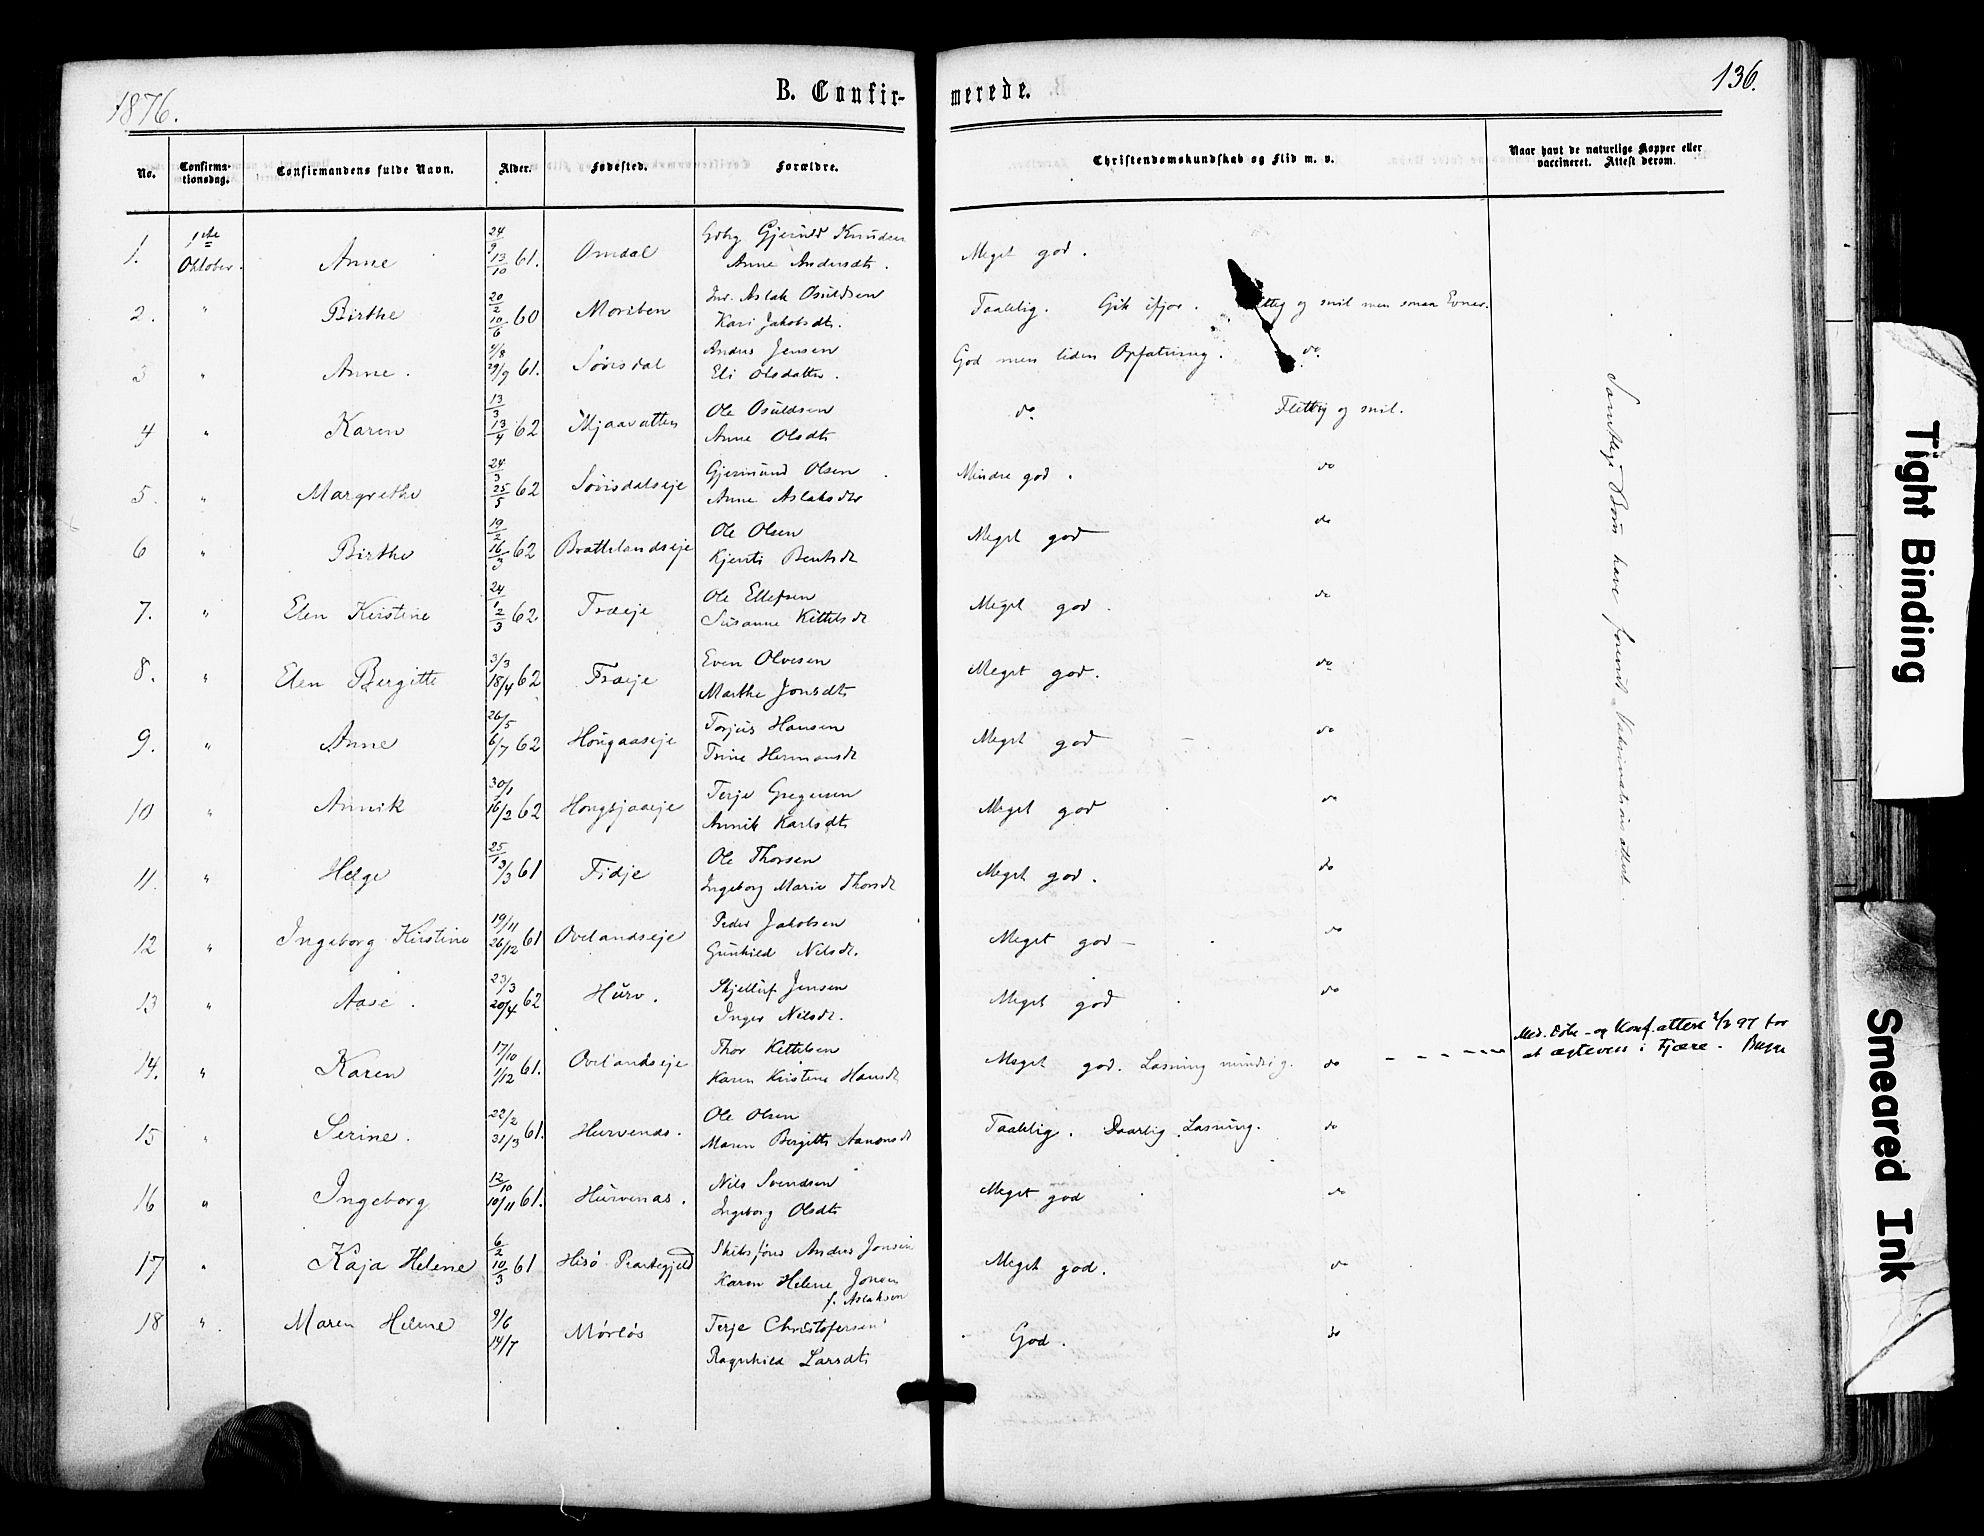 1876.
B. Confir-
merede.
136.
No.
Confirma-
tionsdag.
Confirmandens fulde Navn.
Alder.
Fødested.
Forældre.
Christendomskundskab og Flid m. v.
Naar havt de naturlige Kopper eller
vaccineret. Attest derom.
1. 1ste Oktober. Anne 24/9 13/10 61. Omdal Gjeruld Knudsen
Anne Andersdtr. Meget god.
2. " Birthe 20/2 10/6 60 Moriben Aslak Osuldsen
Kari Jakobsdt. Taalelig. Gik ifjor. og snil men smaa Evner.
3 " Anne. 4/8 29/9 61. Søvisdal Anders Jensen
Eli Olsdatter. God men liden Opfatning. do
4 " Karen 13/3 13/4 62 Mjaavatten Ole Osuldsen
Anne Olsdtr do Flittig og snil.
5. " Margrethe 24/3 25/5 62 Søvisdalseje Gjermund Olsen
Anne Aslaksdtr Mindre god. do
6 " Birthe 19/2 16/3 62 Brattelandseje Ole Olsen
Kjersti Bentsdt Meget god do
7. " Elen Kirstine 24/1 2/3 62 Træeje Ole Ellefsen
Susanne Kittelsdt Meget god. do
8. " Elen Bergitte 3/3 18/4 62 Træeje Even Olvesen
Marthe Jonsdtr Meget god. do
9. " Anne 26/5 6/7 62 Hougaaseje Torjus Hansen
Trine Hermansdt Meget god do
10 " Annik 30/1 16/2 62 Hougsjaaeje Terje Gregersen
Annik Karlsdtr Meget god do
11. " Helge 25/1 3/3 61 Fidje Ole Thorsen
Ingeborg Marie Thorsdt Meget god. do
12 " Ingeborg Kirstine 19/11 26/12 61 Ovelandseje Peder Jakobsen
Gunhild Nilsdt. Meget god do
13 " Aase. 23/3 20/4 62 Hurv. Skjelluf Jensen
Inger Nilsdt. Meget god do
14. " Karen 17/10 1/12 61. Ovelandseje Thor Kittelsen
Karen Kirstine Hansdt Meget god. Læsning mindre g. do
15 " Serine. 22/2 31/3 61. Hurvenes. Ole Olsen
Maren Bergitte Aanonsdt Taalelig. Daarlig Læsning. do
16 " Ingeborg 12/10 10/11 61. Hurvenas. Nils Svendsen
Ingeborg Olsdtr Meget god do
17 " Kaja Helene 6/2 10/3 61 Hisø Præstegjeld Skibsfører Anders Jonsen
Karen Helene Jonsen
f. Aslaksen Meget god. do
18 " Maren Helene 9/6 14/7 Mørløs Terje Christofersen
Ragnhild Larsdtr God. do
Samtlige Børn have forevist Vaccinationsattest.
Med. Døbe- og Konf. attest 2/3 97 for
at ægtevies i Fjære.
Tight Binding
Smeared Ink